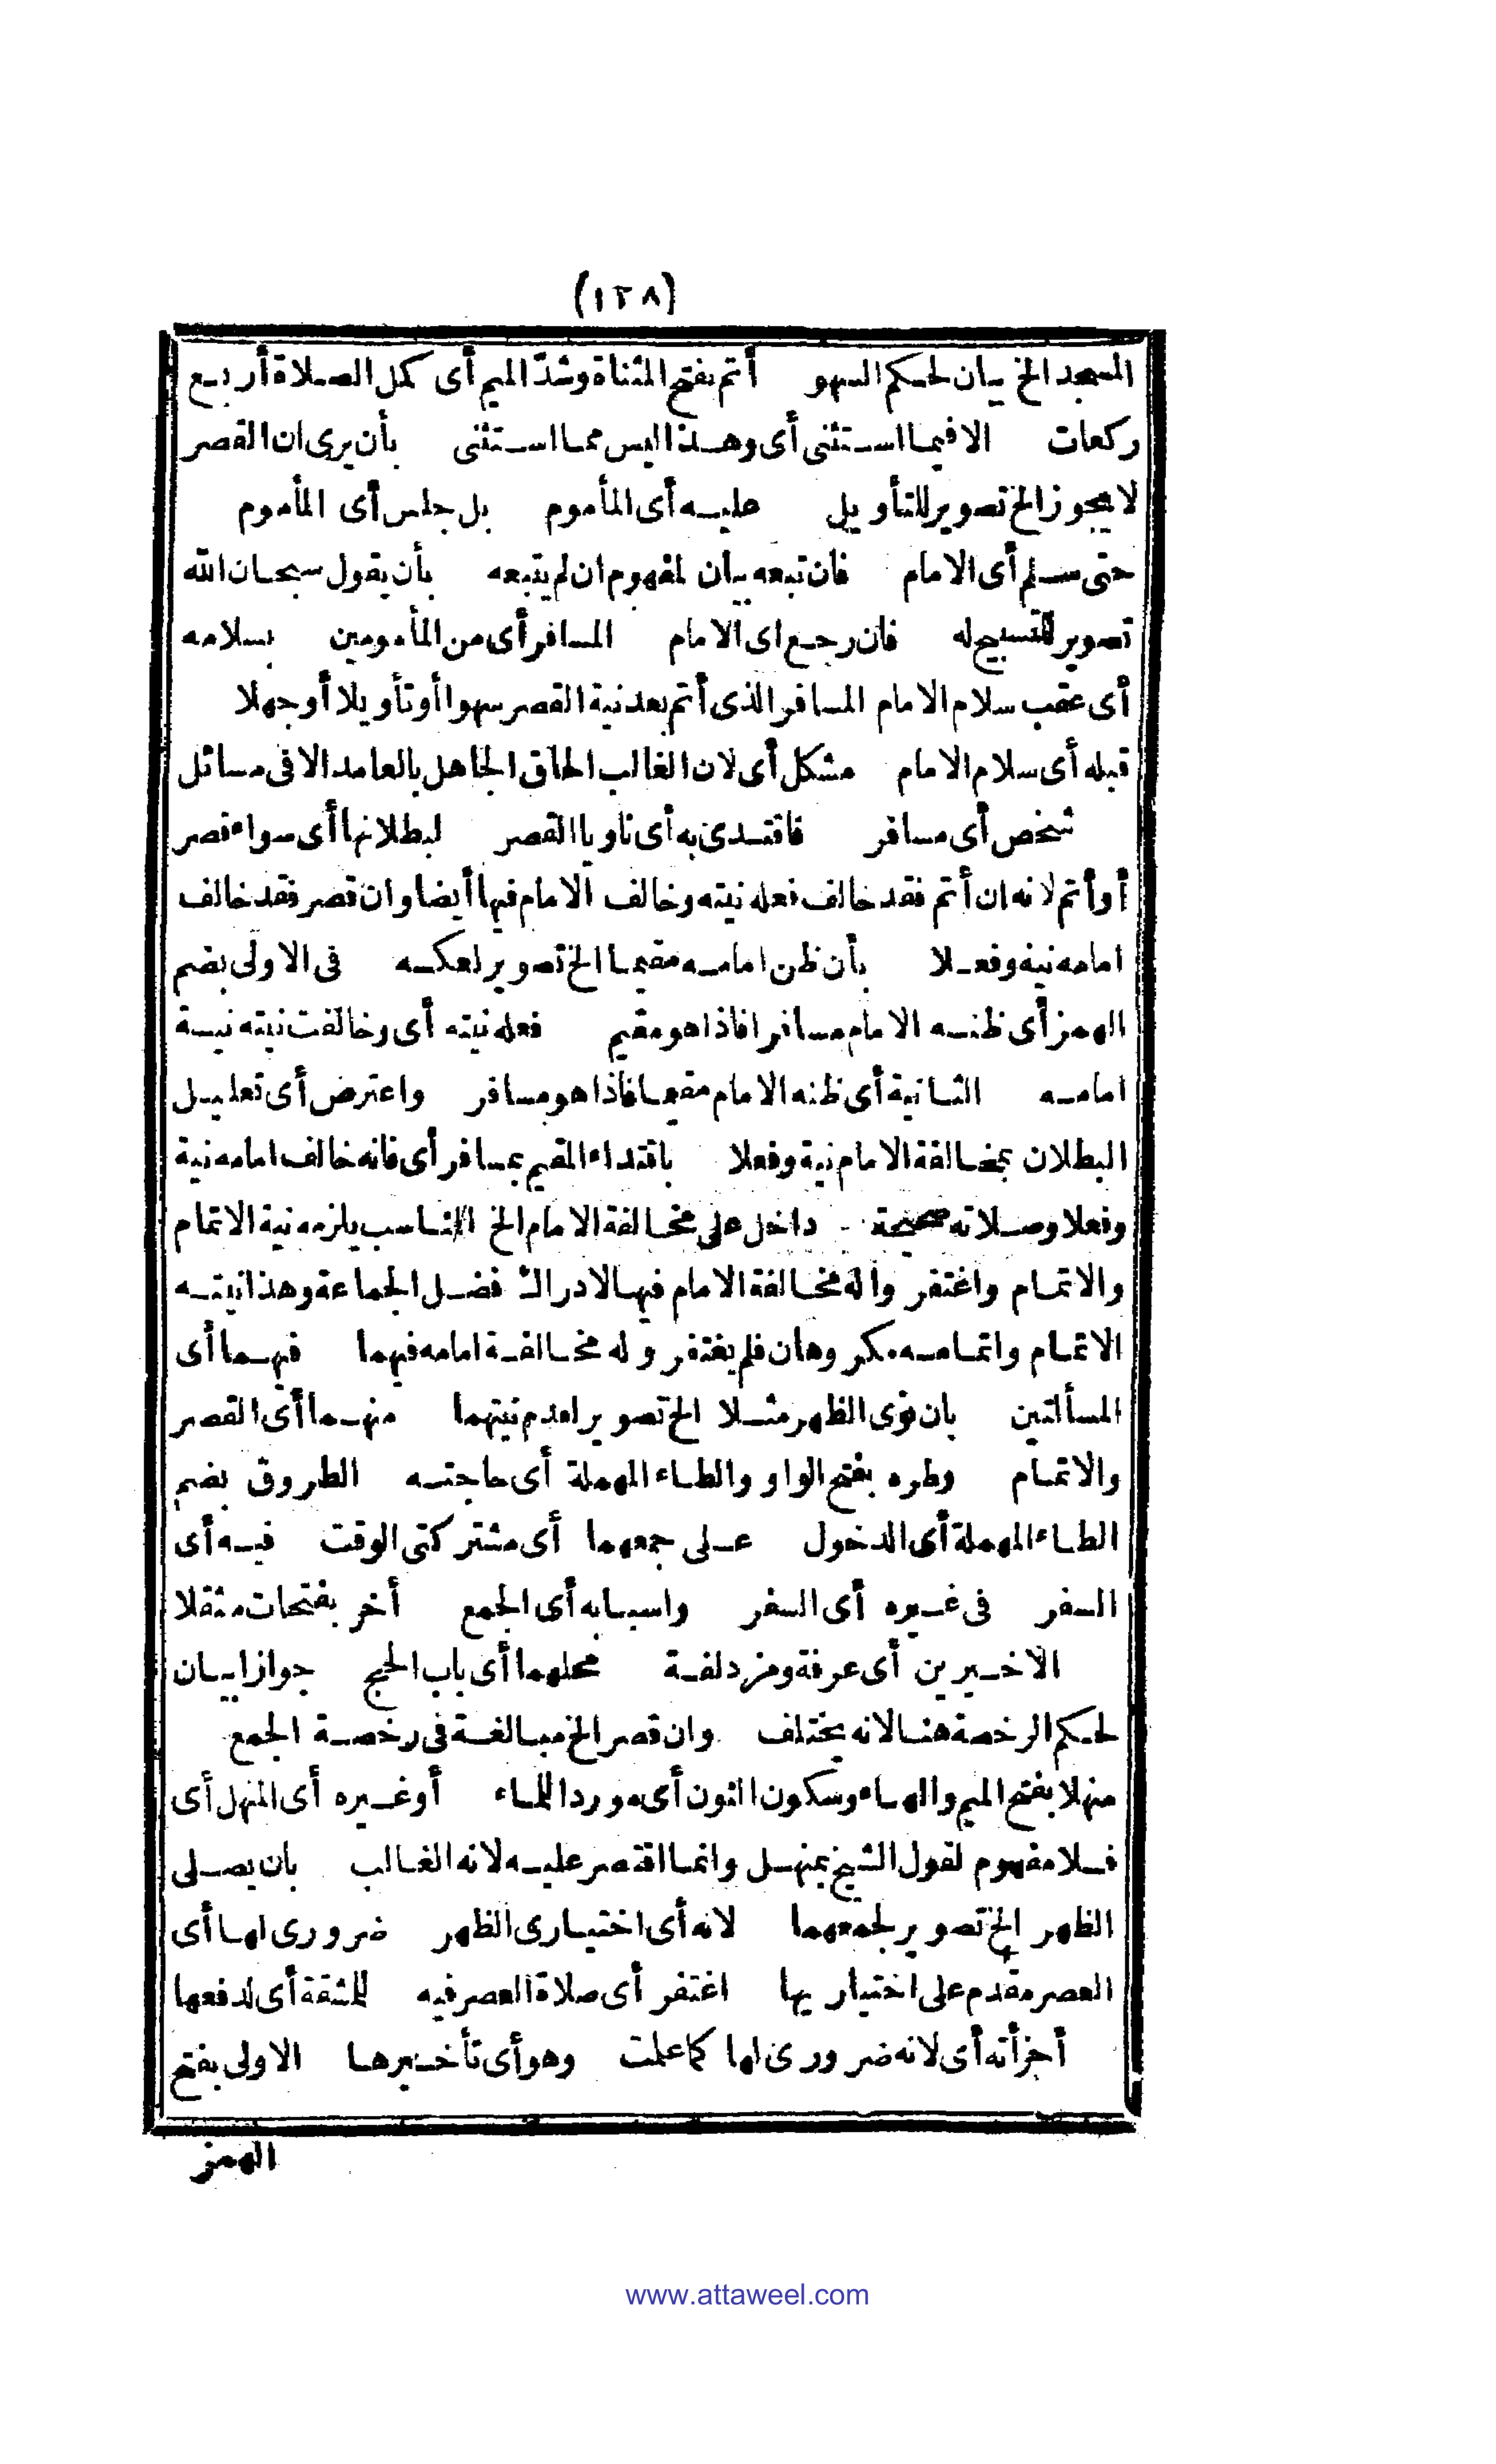 (١٣٨)
المسجد الخ بيان لحكم السهو أتم بفتح المثناة وشدّ الميم أى كمل الصلاة أربع
ركعات الا فيما استثنى أى وهذا ليس مما استثنى بأن يرى ان القصر
لا يجوز الخ تصوير للتأويل عليه أى المأموم بل جلس أى المأموم
حتى سلم أى الامام فان تبعه بيان لمفهوم ان لم يتبعه بأن يقول سبحان الله
تصوير للتسبيح له فان رجع اى الامام المسافر أى من المأمومين بسلامه
أى عقب سلام الامام المسافر الذى أتم بعد نية القصر سهوا أو تأويلا أو جهلا
قبله أى سلام الامام مشكل أى لان الغالب الحاق الجاهل بالعامد الا فى مسائل
شخص أى مسافر فاقتدى به أى ناويا القصر لبطلانها أى سواء قصر
أو أتم لانه ان أتم فقد خالف فعله نيته وخالف الامام فيها أيضا وان قصر فقد خالف
امامه نية وفعلا بأن ظن امامه مقيما الخ تصوير لعكسه فى الاولى بضم
الهمز أى ظنه الامام مسافرا فاذا هو مقيم فعله نيته أى وخالفت نيته نية
امامه الثانية أى ظنه الامام مقيما فاذا هو مسافر واعترض أى تعليل
البطلان بمخالفة الامام نية وفعلا باقتداء المقيم بمسافر أى فانه خالف امامه نية
وفعلا وصلاته صحيحة داخل على مخالفة الامام الخ المناسب يلزمه نية الاتمام
والاتمام واغتفر واله مخالفة الامام فيها لادراك فضل الجماعة وهذا نيته
الاتمام واتمامه مكروهان فلم يغتفر وله مخالفة امامه فيهما فيهما أى
المسألتين بان نوى الظهر مثلا الخ تصوير لعدم نيتهما منهما أى القصر
والاتمام وطره بفتح الواو والطاء المهملة أى حاجته الطروق بضم
الطاء المهملة أى الدخول على جمعهما أى مشتركتى الوقت فيه أى
السفر فى غيره أى السفر واسبابه أى الجمع أخر بفتحات مثقلا
الاخيرين أى عرفة ومزدلفة محلهما أى باب الحج جوازا بيان
لحكم الرخصة هنا لانه يختلف وان قصر الخ مبالغة فى رخصة الجمع
منهلا بفتح الميم والهاء وسكون النون أى موردا للماء أو غيره أى المنهل أى
فلا مفهوم لقول الشيخ بمنهل وانما اقتصر عليه لانه الغالب بان يصلى
الظهر الخ تصوير لجمعهما لانه أى اختيارى الظهر ضرورى لها أى
العصر مقدم على اختياريها اغتفر أى صلاة العصر فيه للمشقة أى لدفعها
أجزأته أى لانه ضرورى لها كما علمت وهو أى تأخيرها الاولى بفتح
الهمز
www.attaweel.com